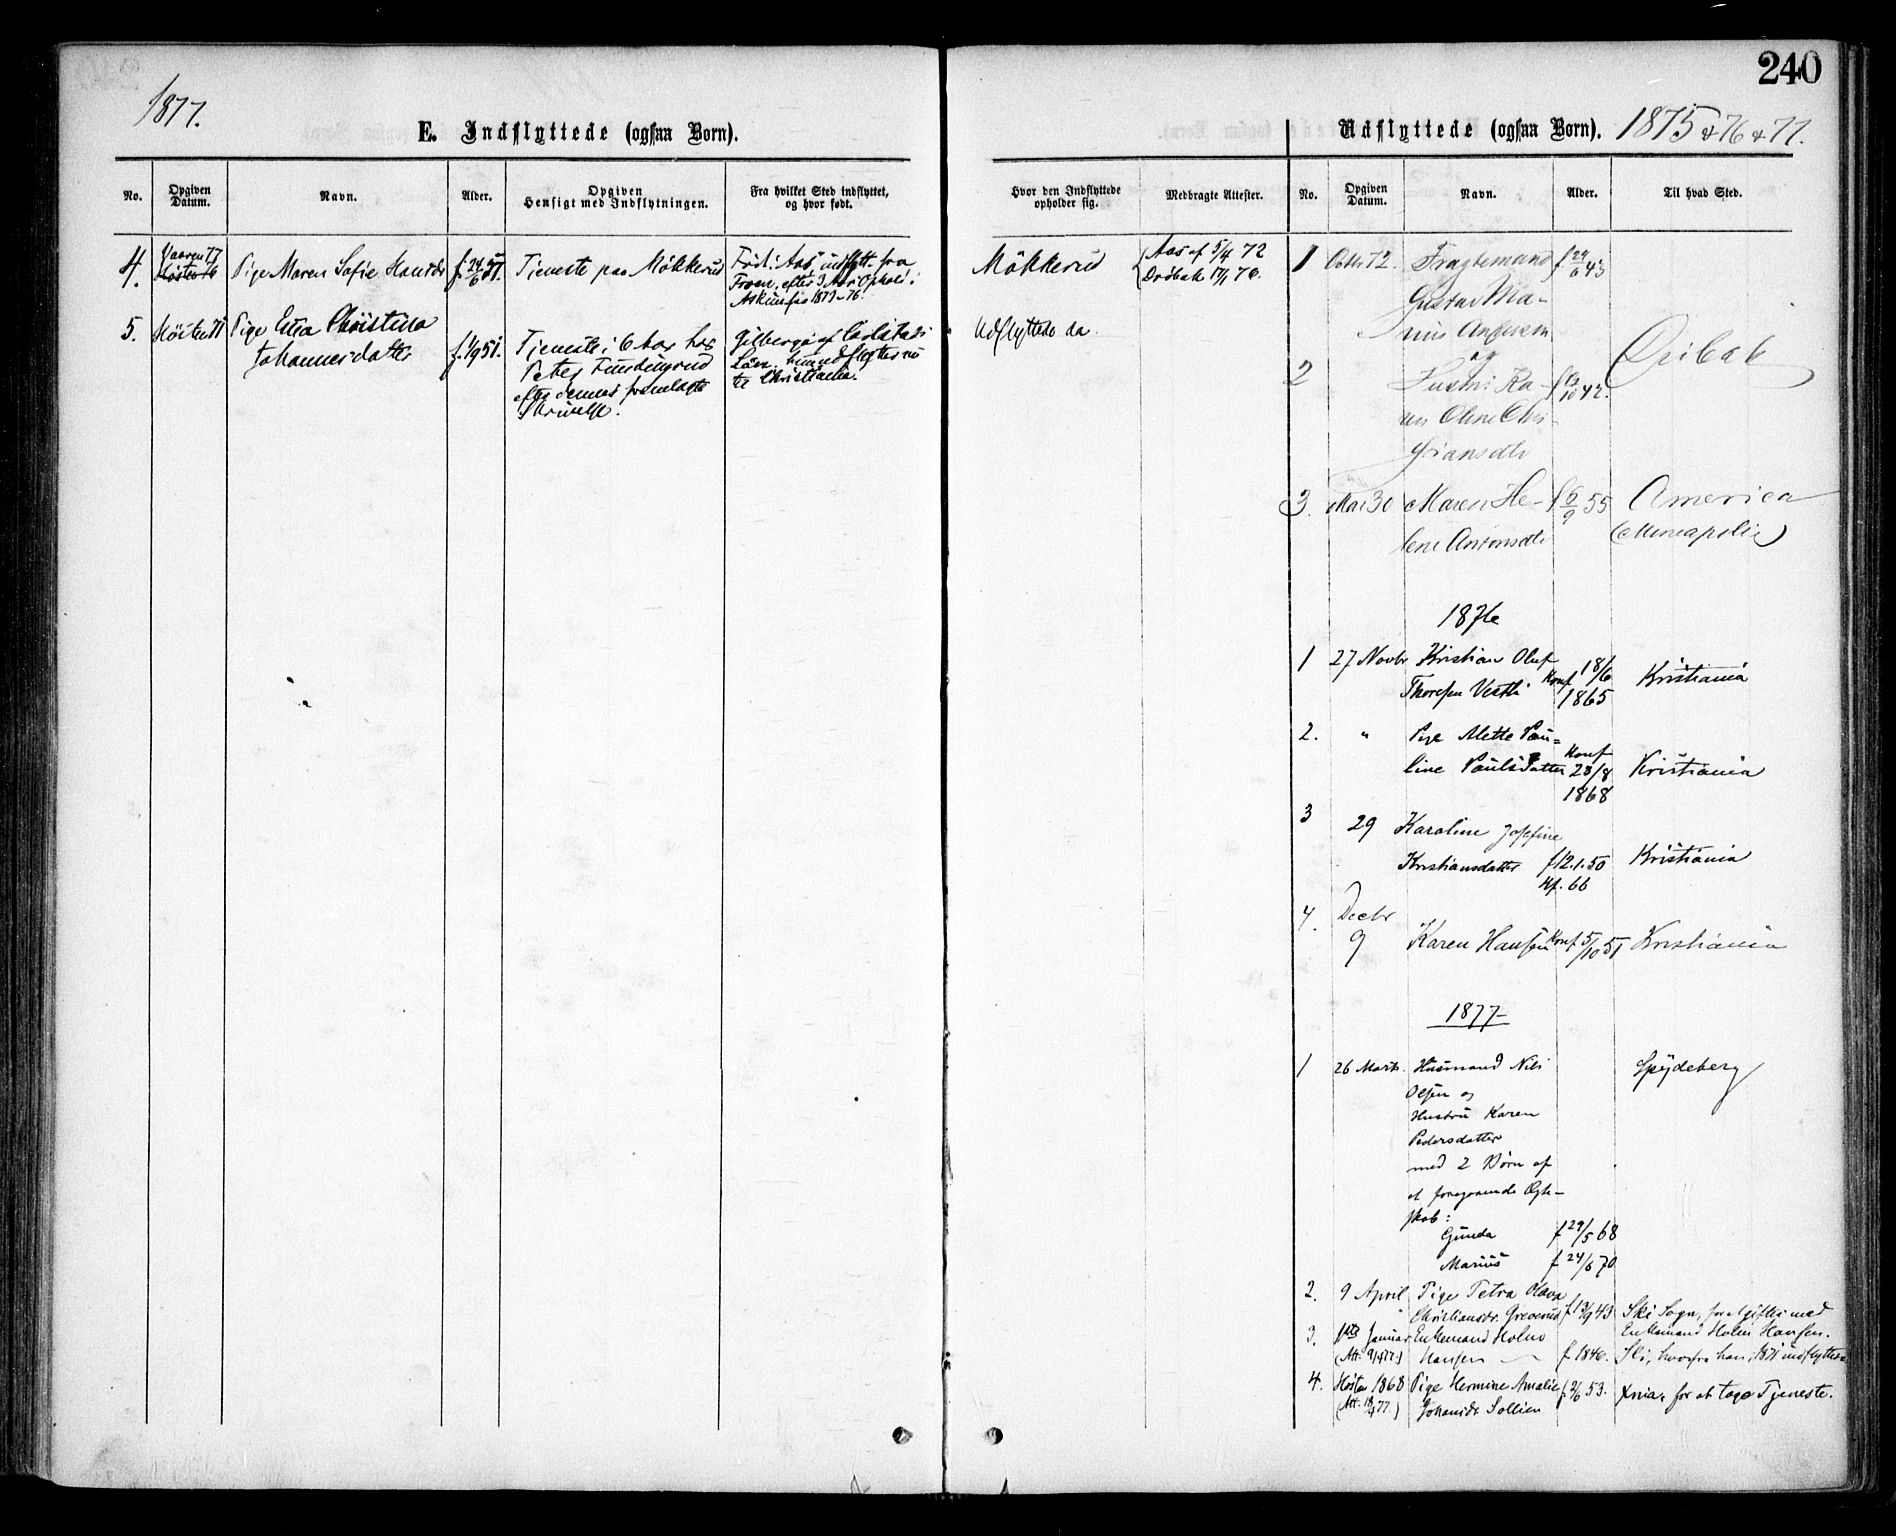 240
1877.
E. Indflyttede (ogsaa Børn).
No.
Opgiven Datum.
Navn.
Alder.
Opgiven Hensigt med Indflytningen.
Fra hvilket Sted indflyttet, og hvor født.
Hvor den Indflyttede opholder sig.
Medbragte Attester.
4. Vaaren 77 Pige Maren Sofie Hansdr f. 24/6 57. Tjeneste paa Mökkerud
Hösten 76
Född i Aas, indflytt. fra
Froen, efter 3 Aars Ophold i
1873-76.
Mökkerud
Aas af 5/4 72
Dröbak 17/1 76.
5. Hösten 71 Pige Christina
Johannesdatter f. 1/9 51.
Tjeneste i 6 Aar hos
Peter
efter dennes fremlagte
Skrivelse.
Gilberga af Carlstads
Län. hun udflyttes nu
til Christiania.
Udflyttede da.
Udflyttede (ogsaa Børn). 1875 & 76 & 77.
No.
Opgiven Datum.
Navn.
Alder.
Til hvad Sted.
1 Octbr 12. Fragtemand f 29/6 43
Gustav Ma-
rius Andersen
og
2 Hustru Ka- f 13/10 42.
ren Oline Chri-
stiansdtr
Dröbak
3. Mai 30 Maren He- f 6/9 55 America
lene Antonsdtr (Mineapolis)
1876
1 27 Novbr Kristian Oluf
Thoresen Vestli Konf 18/6 1865 Kristiania
2. " Pige Mette Pau=
line Paulsdatter Konf 23/8 1868 Kristiania
3 29 Karoline Josefine
Kristiansdatter f 12.1.50 Kristiania
Kf. 66
4. Decbr
9 Karen Hansen Konf 5/10 51 Kristiania
1877
1 26 Marts. Husmand Nils Spydeberg
Olsen og
Hustru Karen
Pedersdatter
med 2 Børn af
et foregaaende Ægte-
skab:
Gunda f 29/5 68
Marius f 24/6 70
2. 9 April Pige Petra Olava
Christiansdr. Greverud f 13/9 43 Ski Sogn, for at giftes med
Enkemand Holm Hansen.
3. 1ste Januar Enkemand Holm
(Att. 9/4 77.) Hansen f 1846. Ski, hvorfra han i 1871 indflyttede
4. Høsten 1868 Pige Hermine Amalie
(Att. 18/4 77.) Johansdr Sollien f 2/6 53. Xnia, for at tage Tjeneste.